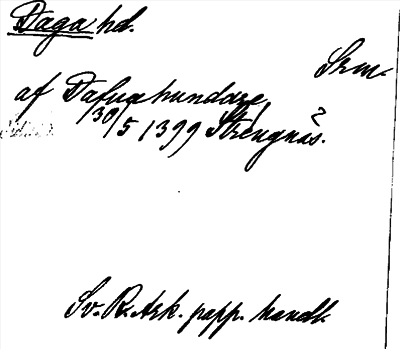 Daga hd.
Srm.
af Dafuahundare,
30/5 1399 Strengnäs.
Sv. R. Ark. papp. handl.